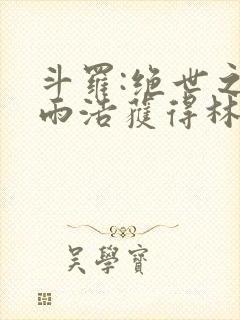 斗羅:絶世之
雨浩獲得林
吴學寶